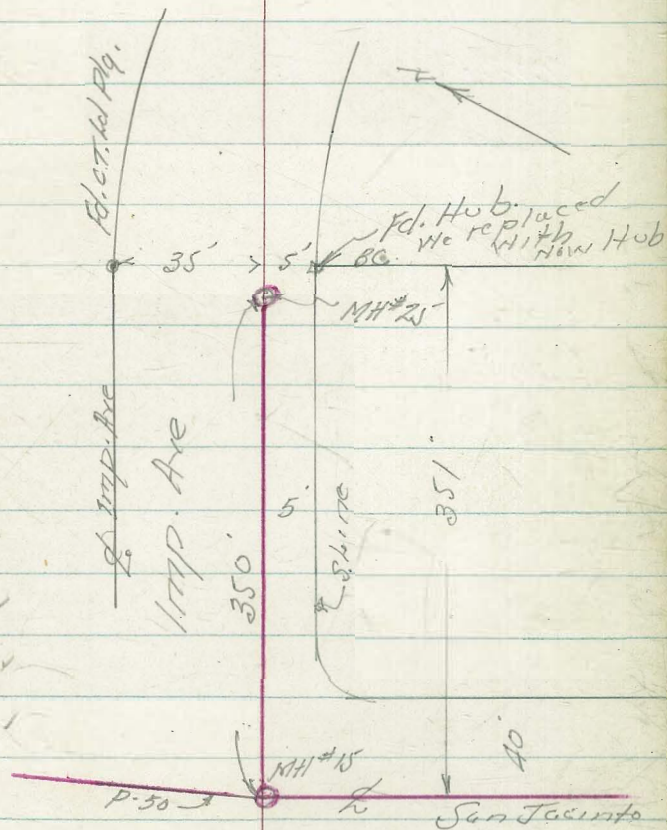 Fd. C.T. Ld Plg.
N
Fd. Hub.
We replaced
with
New Hub
35'
5'
BC.
MH #25
℄ Imp. Ave
Imp. Ave
350'
5'
S. Line
351'
40'
MH #15
P-50
℄
San Jacinto